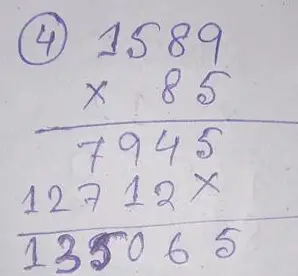 4 1589
× 85
7945
12712×
135065